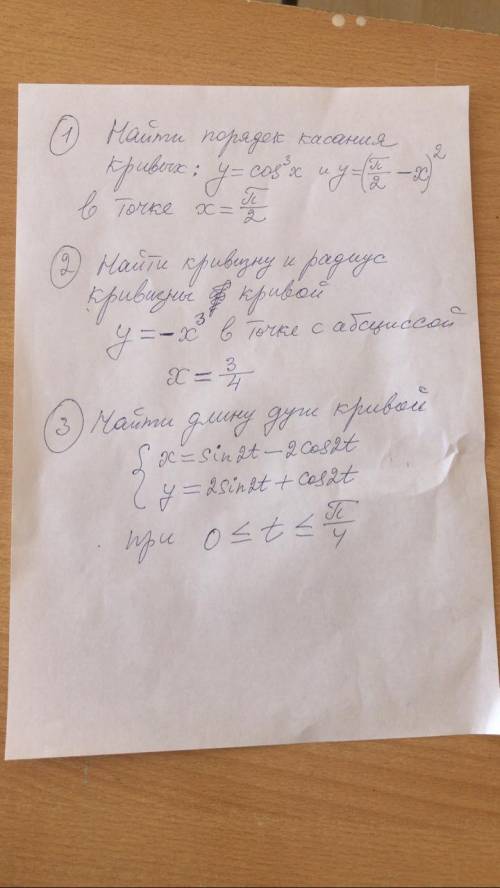 1 Найти порядек касания
кривых: y = cos³x и y = (π/2 - x)²
в точке x = π/2
2 Найти кривизну и радиус
кривизны кривой
y = -x³ в точке с абсциссой
x = 3/4
3 Найти длину дуги кривой
{ x = sin2t - 2cos2t
y = 2sin2t + cos2t
при 0 ≤ t ≤ π/4